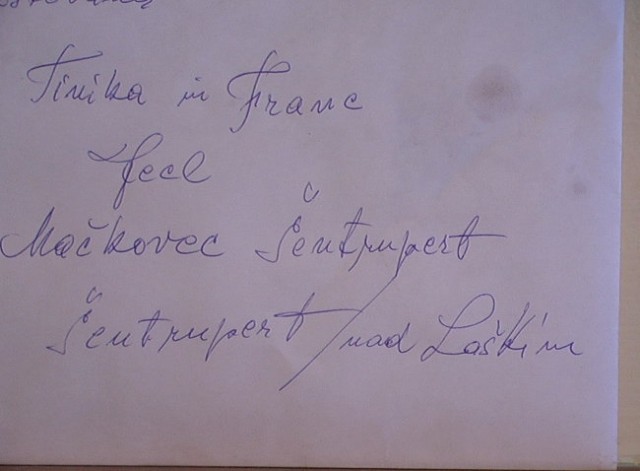 Tinika in Franc
Jecl
Mačkovec Šentrupert
Šentrupert / nad Laškim